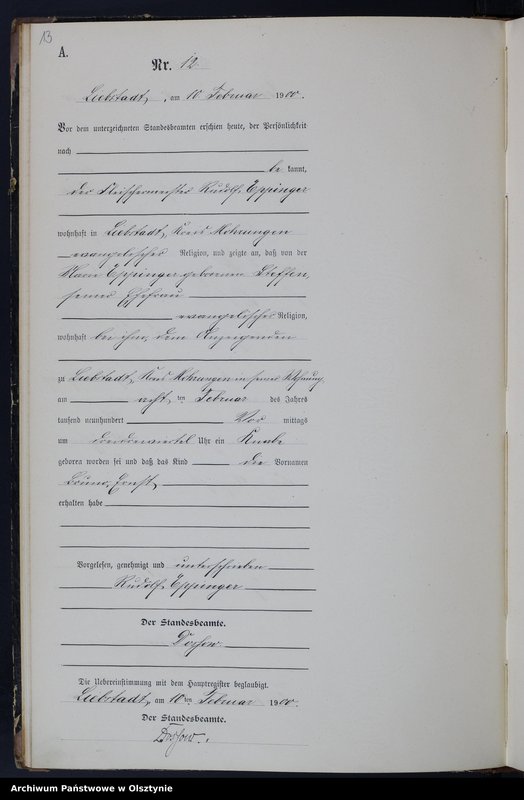 13
A.
Nr. 12
Liebstadt, am 10 Februar 1900.
Vor dem unterzeichneten Standesbeamten erschien heute, der Persönlichkeit
nach
be kannt,
der Fleischermeister Rudolf Eppinger
wohnhaft in Liebstadt, Kreis Mohrungen
evangelischer Religion, und zeigte an, daß von der
Marie Eppinger gebornen Steffen,
seiner Ehefrau
evangelischer Religion,
wohnhaft bei ihm, dem Anzeigenden
zu Liebstadt, Kreis Mohrungen in seiner Wohnung
am acht ten Februar des Jahres
tausend neunhundert Vor mittags
um dreiviertel Uhr ein Knabe
geboren worden sei und daß das Kind die Vornamen
Bruno, Ernst,
erhalten habe
Vorgelesen, genehmigt und unterschrieben
Rudolf Eppinger
Der Standesbeamte.
Die Uebereinstimmung mit dem Hauptregister beglaubigt.
Liebstadt, am 10ten Februar 1900.
Der Standesbeamte.
Archiwum Państwowe w Olsztynie